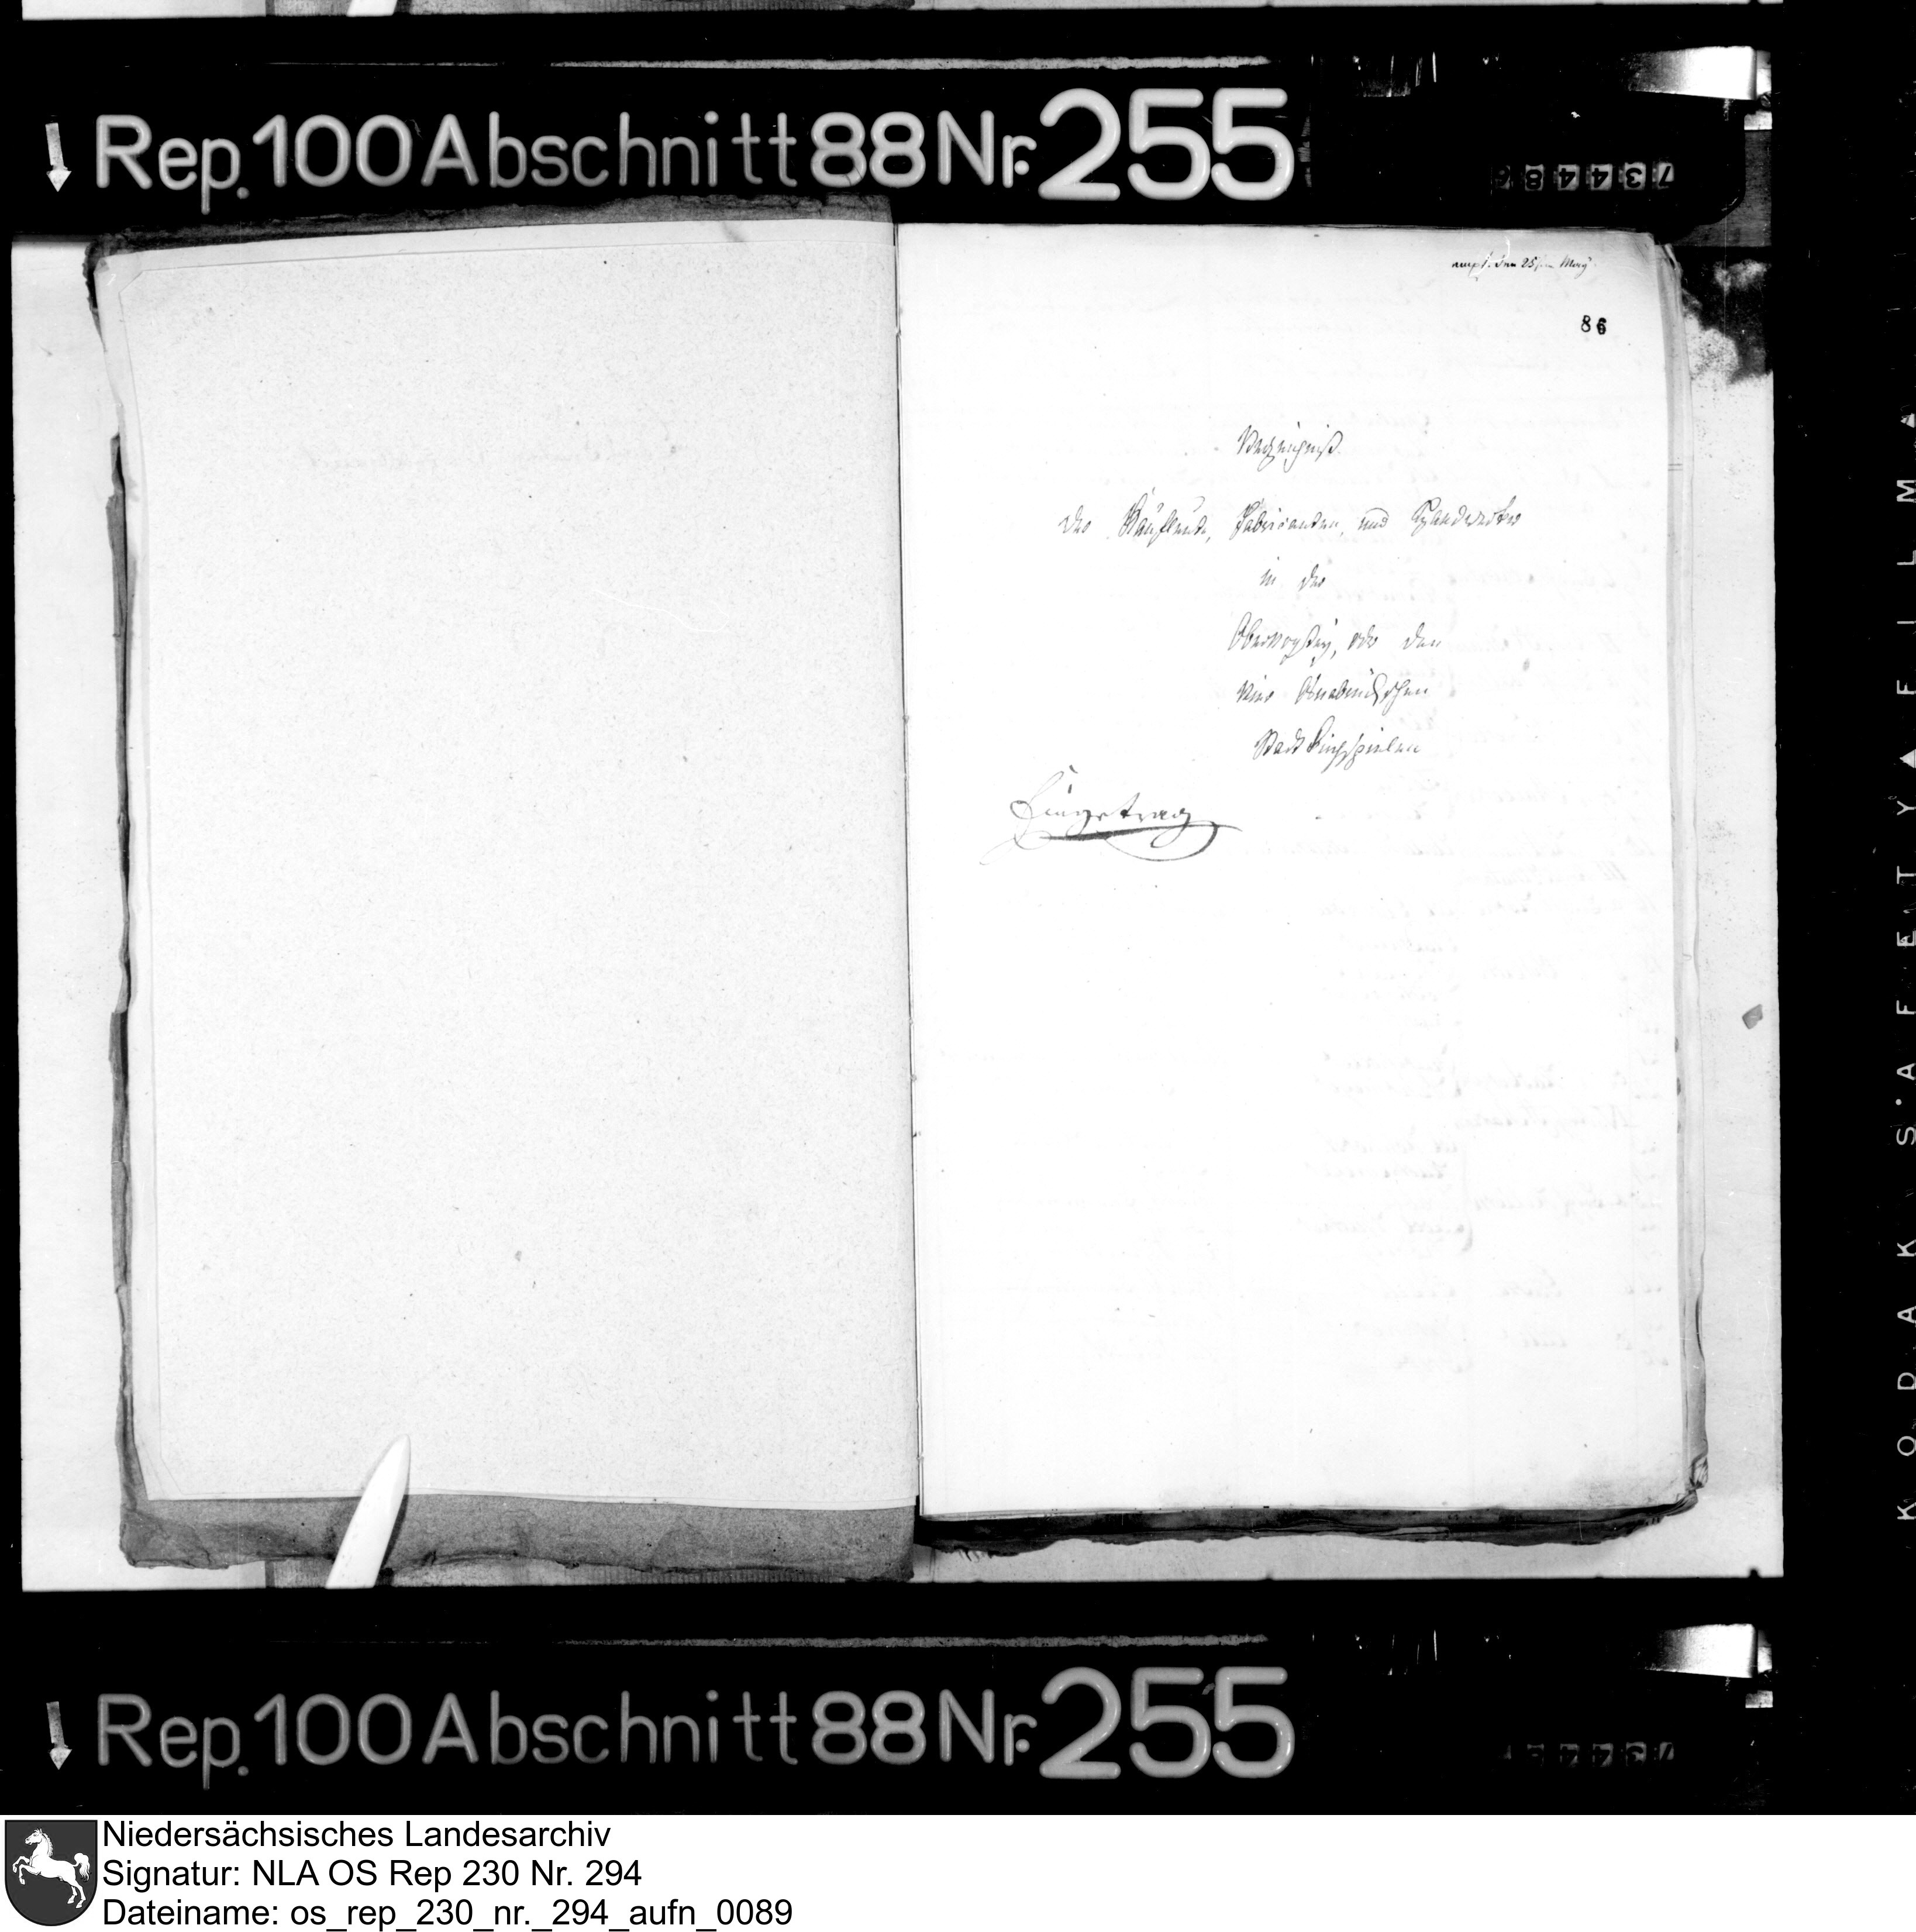 Rep. 100 Abschnitt 88 Nr. 255
den 25ten May
86
Verzeichniß
der Kaufleute, Fabricanten, und Handwerker
in der
Obervogtey, oder den
vier Osnabrückschen
Stadt Kirchspielen
Eingetrag
Rep. 100 Abschnitt 88 Nr. 255
KODAK SAFETY FILM
Niedersächsisches Landesarchiv
Signatur: NLA OS Rep 230 Nr. 294
Dateiname: os_rep_230_nr._294_aufn_0089